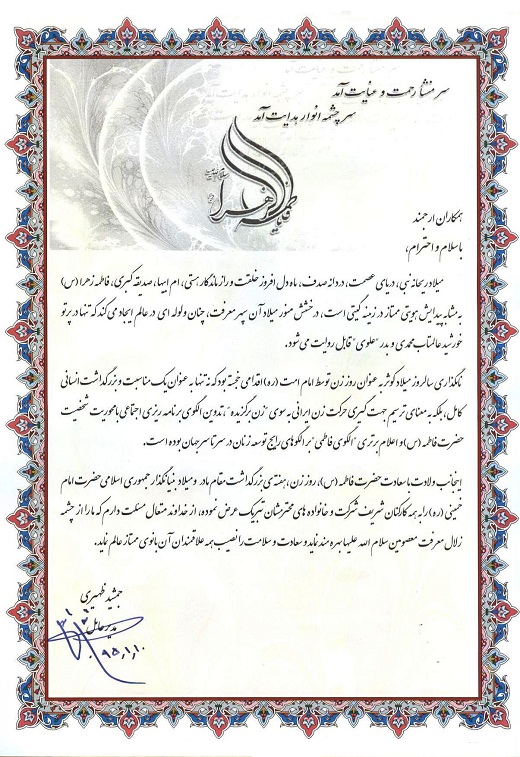 سر منشأ رحمت و عنایت آمد
سرچشمه انوار هدایت آمد
فاطمة الزهرا
همکاران ارجمند
باسلام و احترام،
میلاد ریحانه نبی، دریای عصمت، دردانه صدف، ماه دل افروز خلقت و راز ماندگار هستی، ام ابیها، صدیقه کبری، فاطمه زهرا (س)
به مثابه پیدایش هویتی ممتاز در زمینه گیتی است، درخشش منور میلاد آن سپهر معرفت، چنان ولوله ای در عالم ایجاد می کند که تنها در پرتو
خورشید عالمتاب محمدی و بدر "علوی" قابل روایت می شود.
نامگذاری سالروز میلاد کوثر به عنوان روز زن توسط امام امت (ره) اقدامی خجسته بود که نه تنها به عنوان یک مناسبت و بزرگداشت انسانی
کامل، بلکه به معنای ترسیم جهت گیری حرکت زن ایرانی به سوی "زن برگزیده"، تدوین الگوی برنامه ریزی اجتماعی با محوریت شخصیت
حضرت فاطمه (س) و اعلام برتری "الگوی فاطمی" بر الگوهای رایج توسعه زنان در سرتاسر جهان بوده است.
اینجانب ولادت با سعادت حضرت فاطمه (س)، روز زن، هفته ی بزرگداشت مقام مادر و میلاد بنیانگذار جمهوری اسلامی حضرت امام
خمینی (ره) را به همه کارکنان شریف شرکت و خانواده های محترمشان تبریک عرض نموده، از خداوند متعال مسئلت دارم که ما را از چشمه
زلال معرفت معصومین سلام الله علیها بهره مند نماید و سعادت و سلامت را نصیب همه علاقمندان آن بانوی ممتاز عالم نماید.
جمشید ظهیری
مدیر عامل
۹۵,۱,۱۰